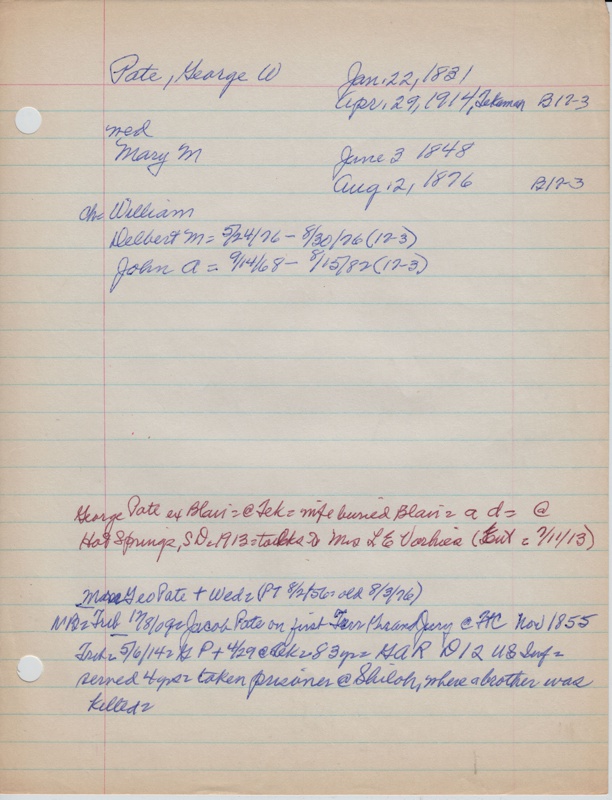 Pate, George W Jan. 22, 1831
Apr. 29, 1914, Tekamah B12-3
med
Mary M June 3 1848
Aug 12, 1876 B12-3
ch= William
Delbert M= 5/24/76 - 8/30/76 (12-3)
John A = 9/14/68 - 8/15/82 (12-3)
George Pate ex Blair= @ Tek= wife buried Blair= a d= @
Hot Springs, SD=1913= talks to Mrs L E Vorhies (Ent = 7/11/13)
Geo Pate + Wed= (PT 8/2/56= old 8/3/76)
Trib 12/8/09= Jacob Pate on first Terr Grand Jury @ FtC Nov 1855
Trib= 5/6/14= G P + 4/29 @ Tek= 83 yrs= GAR D 12 US Inf=
served 4 yrs= taken prisoner @ Shiloh, where a brother was
killed=